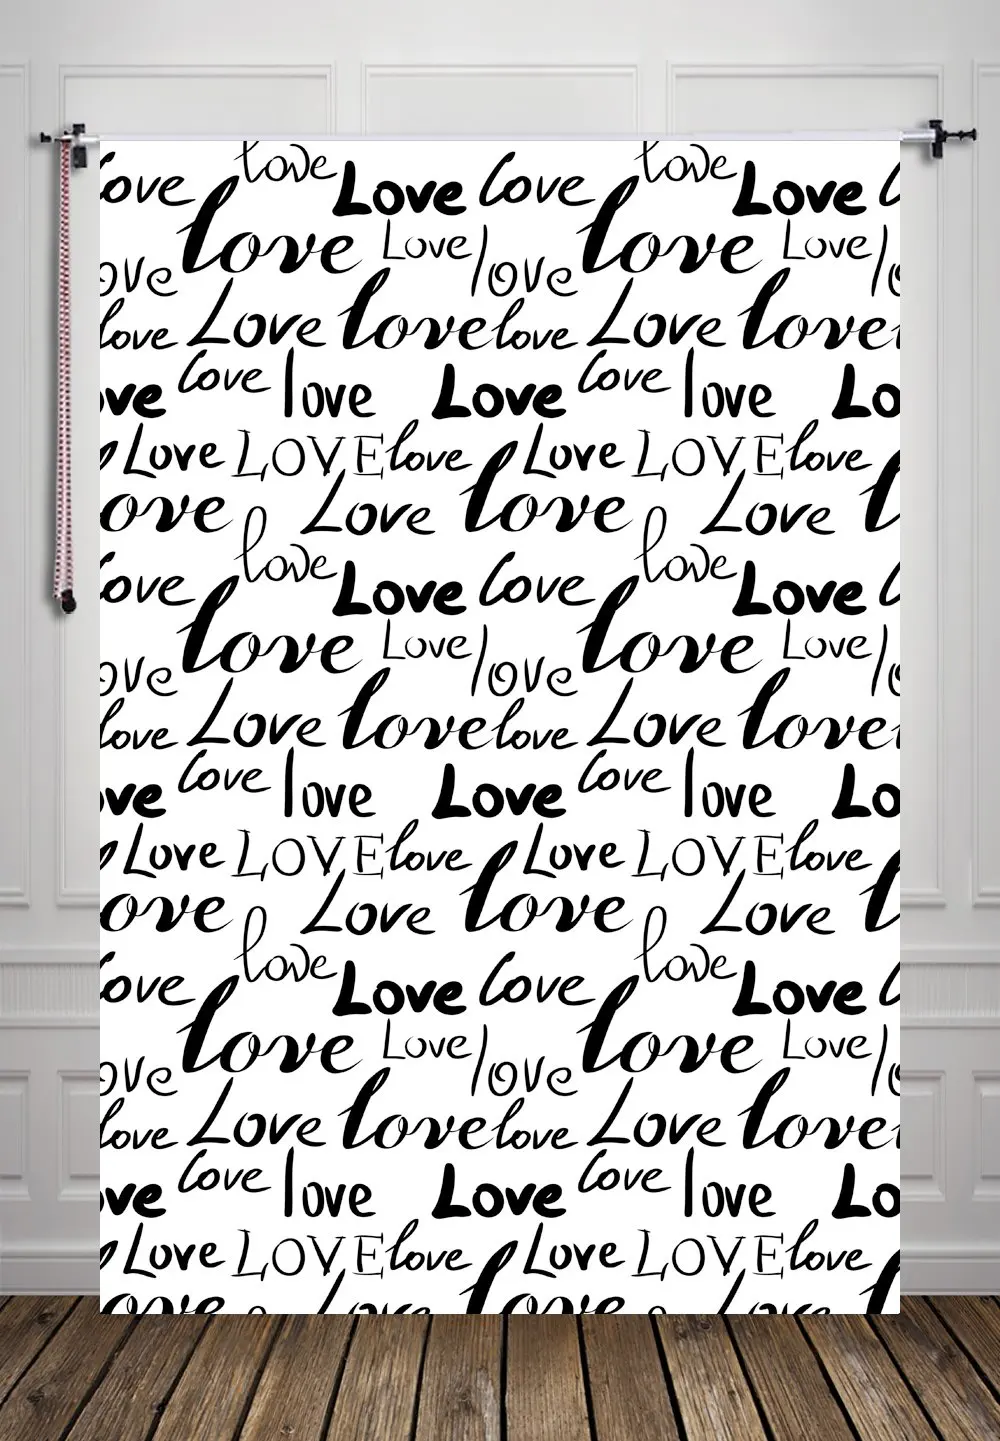 love love
love Love love Love
love Love love Love
ove love lo
love Love love love Love love
ve love love Love love love Lo
Love LOVE love Love LOVE love
ove Love love Love l
love love
love Love love Love
love Love love Love
ove love lo
love Love love love Love love
ve love love Love love love Lo
Love LOVE love Love LOVE love
ove Love love Love l
love love
love Love love Love
love Love love Love
ove love lo
love Love love love Love love
ve love love Love love love Lo
Love LOVE love Love LOVE love
ove Love love Love